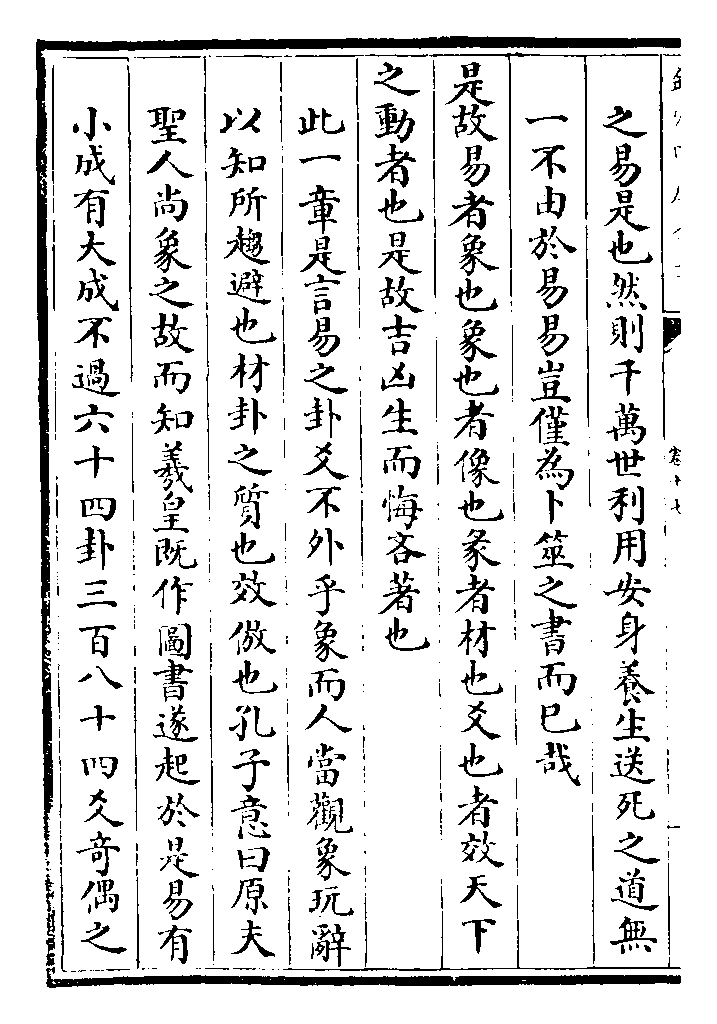 之易是也然則千萬世利用安身養生送死之道無
一不由於易易豈僅為卜筮之書而已哉
是故易者象也象也者像也彖者材也爻也者效天下
之動者也是故吉凶生而悔吝著也
此一章是言易之卦爻不外乎象而人當觀象玩辭
以知所趨避也材卦之質也效倣也孔子意曰原夫
聖人尚象之故而知羲皇既作圖書遂起於是易有
小成有大成不過六十四卦三百八十四爻奇偶之